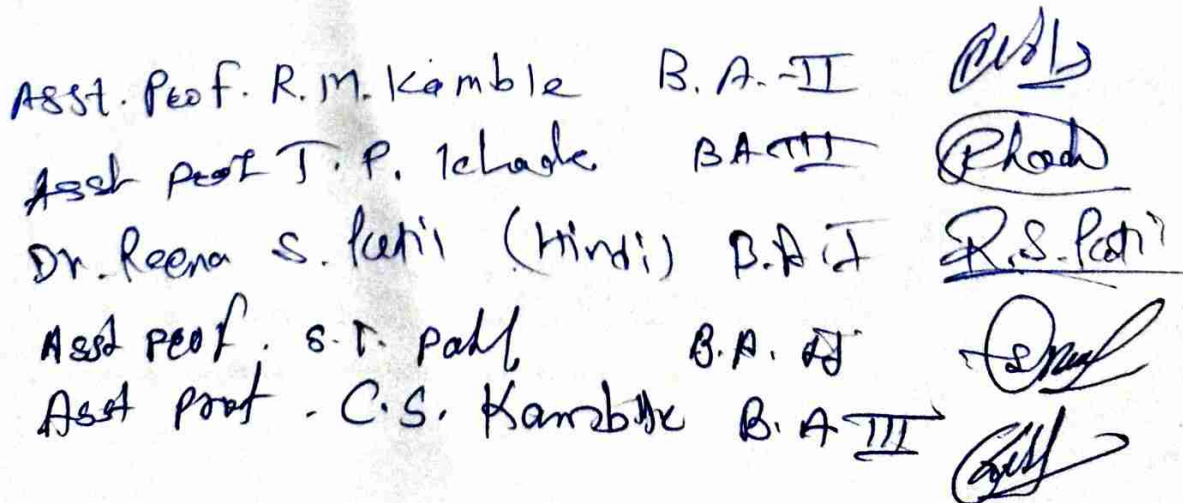 Asst. Prof. R. M. Kamble B. A.-II
Asst Prof T. P. Khade BA III
Dr. Reena S. Patil (Hindi) B.A I R.S. Patil
Asst Prof. S. T. Patil B.A. II
Asst Prof. C.S. Kamble B. A III